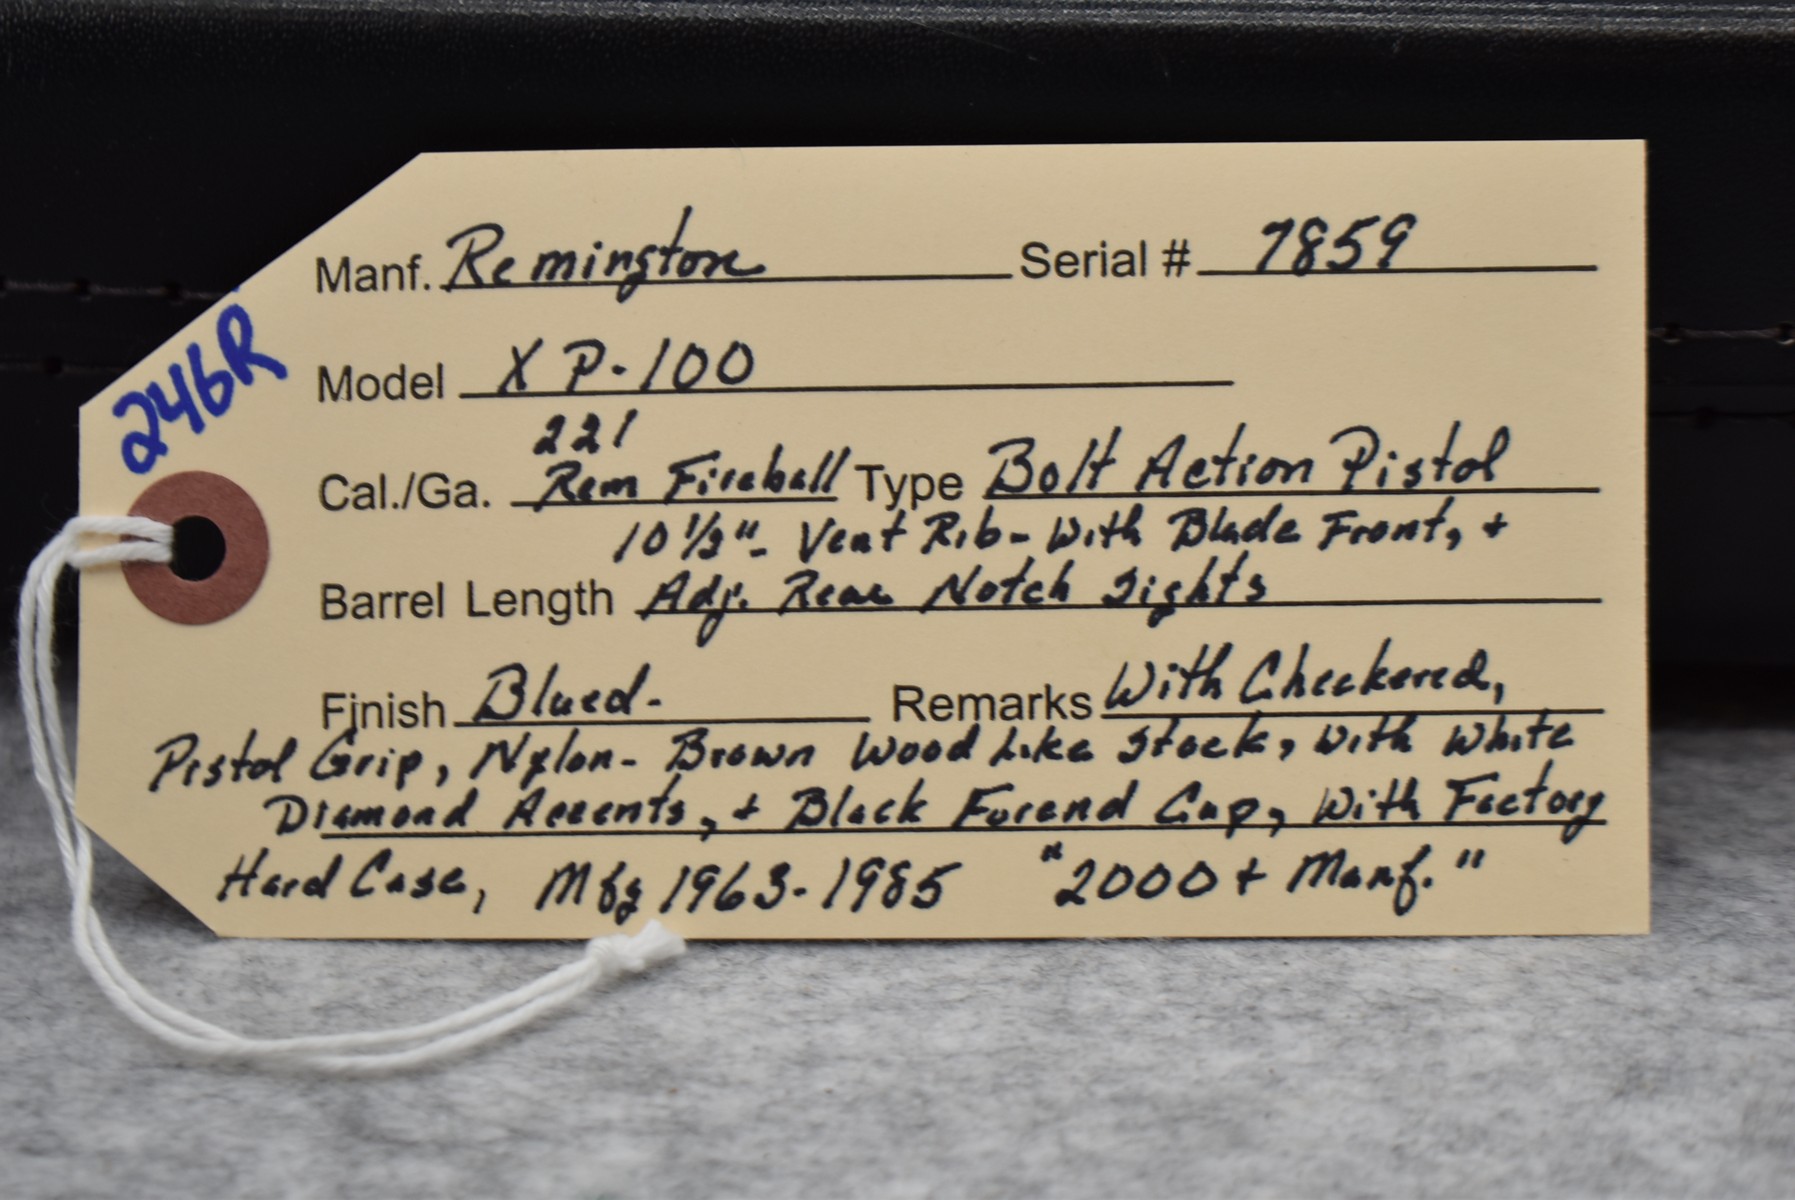 246R
Manf. Remington Serial # 7859
Model XP-100
221
Cal./Ga. Rem Fireball Type Bolt Action Pistol
10 1/2" - Vent Rib - With Blade Front, +
Barrel Length Adj. Rear Notch Sights
Finish Blued - Remarks With Checkered,
Pistol Grip, Nylon - Brown Wood Like Stock, With White
Diamond Accents, + Black Forend Cap, With Factory
Hard Case, Mfg 1963-1985 "2000 + Manf."